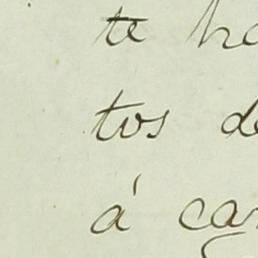 te ha
tos de
á car